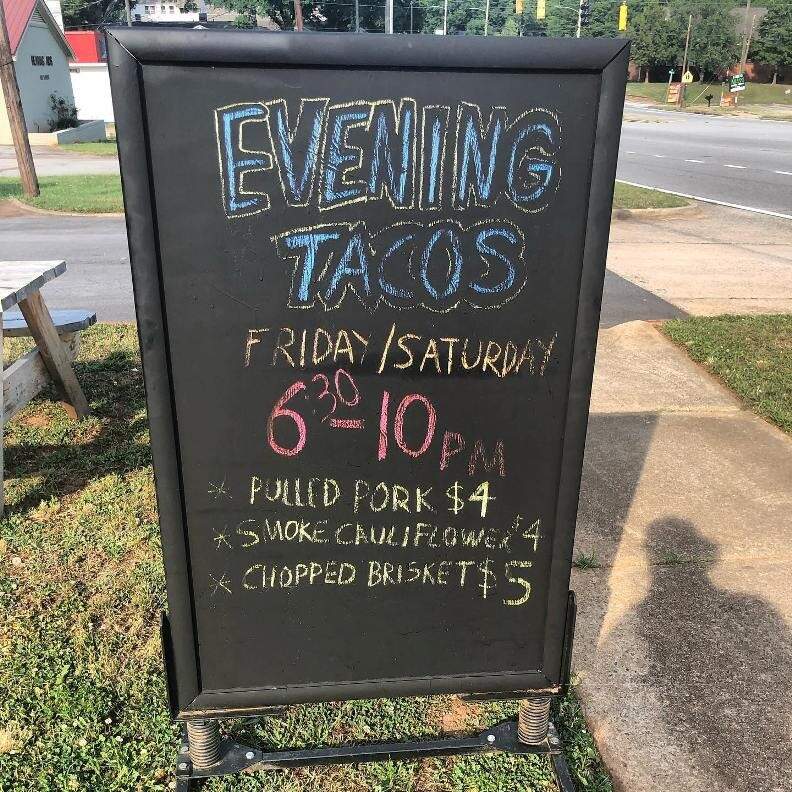 EVENING
TACOS
FRIDAY/SATURDAY
6:30-10PM
* PULLED PORK $4
* SMOKE CAULIFLOWER $4
* CHOPPED BRISKET $5